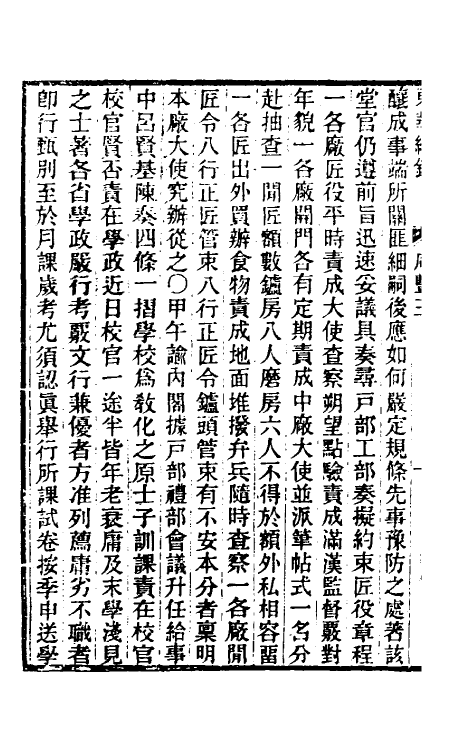 釀成事端所關匪細嗣後應如何嚴定規條先事豫防之處著該
堂官仍遵前旨迅速妥議具奏尋戶部工部奏擬約束匠役章程
一各廠匠役平時責成大使查察朔望點驗責成滿漢監督覈對
年貌一各廠開門各有定期責成中廠大使並派筆帖式一名分
赴抽查一開匠額數鑪房八人磨房六人不得於額外私相容留
一各匠出外買辦食物責成地面堆撥弁兵隨時查察一各廠開
匠令八行正匠管束八行正匠令鑪頭管束有不安本分者稟明
本廠大使究辦從之〇甲午諭內閣據戶部禮部會議升任給事
中呂賢基陳奏四條一摺學校爲敎化之原士子訓課責在校官
校官賢否責在學政近日校官一途半皆年老衰庸及末學淺見
之士著各省學政嚴行考覈文行兼優者方准列薦庸劣不職者
卽行甄別至於月課歲考尤須認眞舉行所課試卷按季申送學